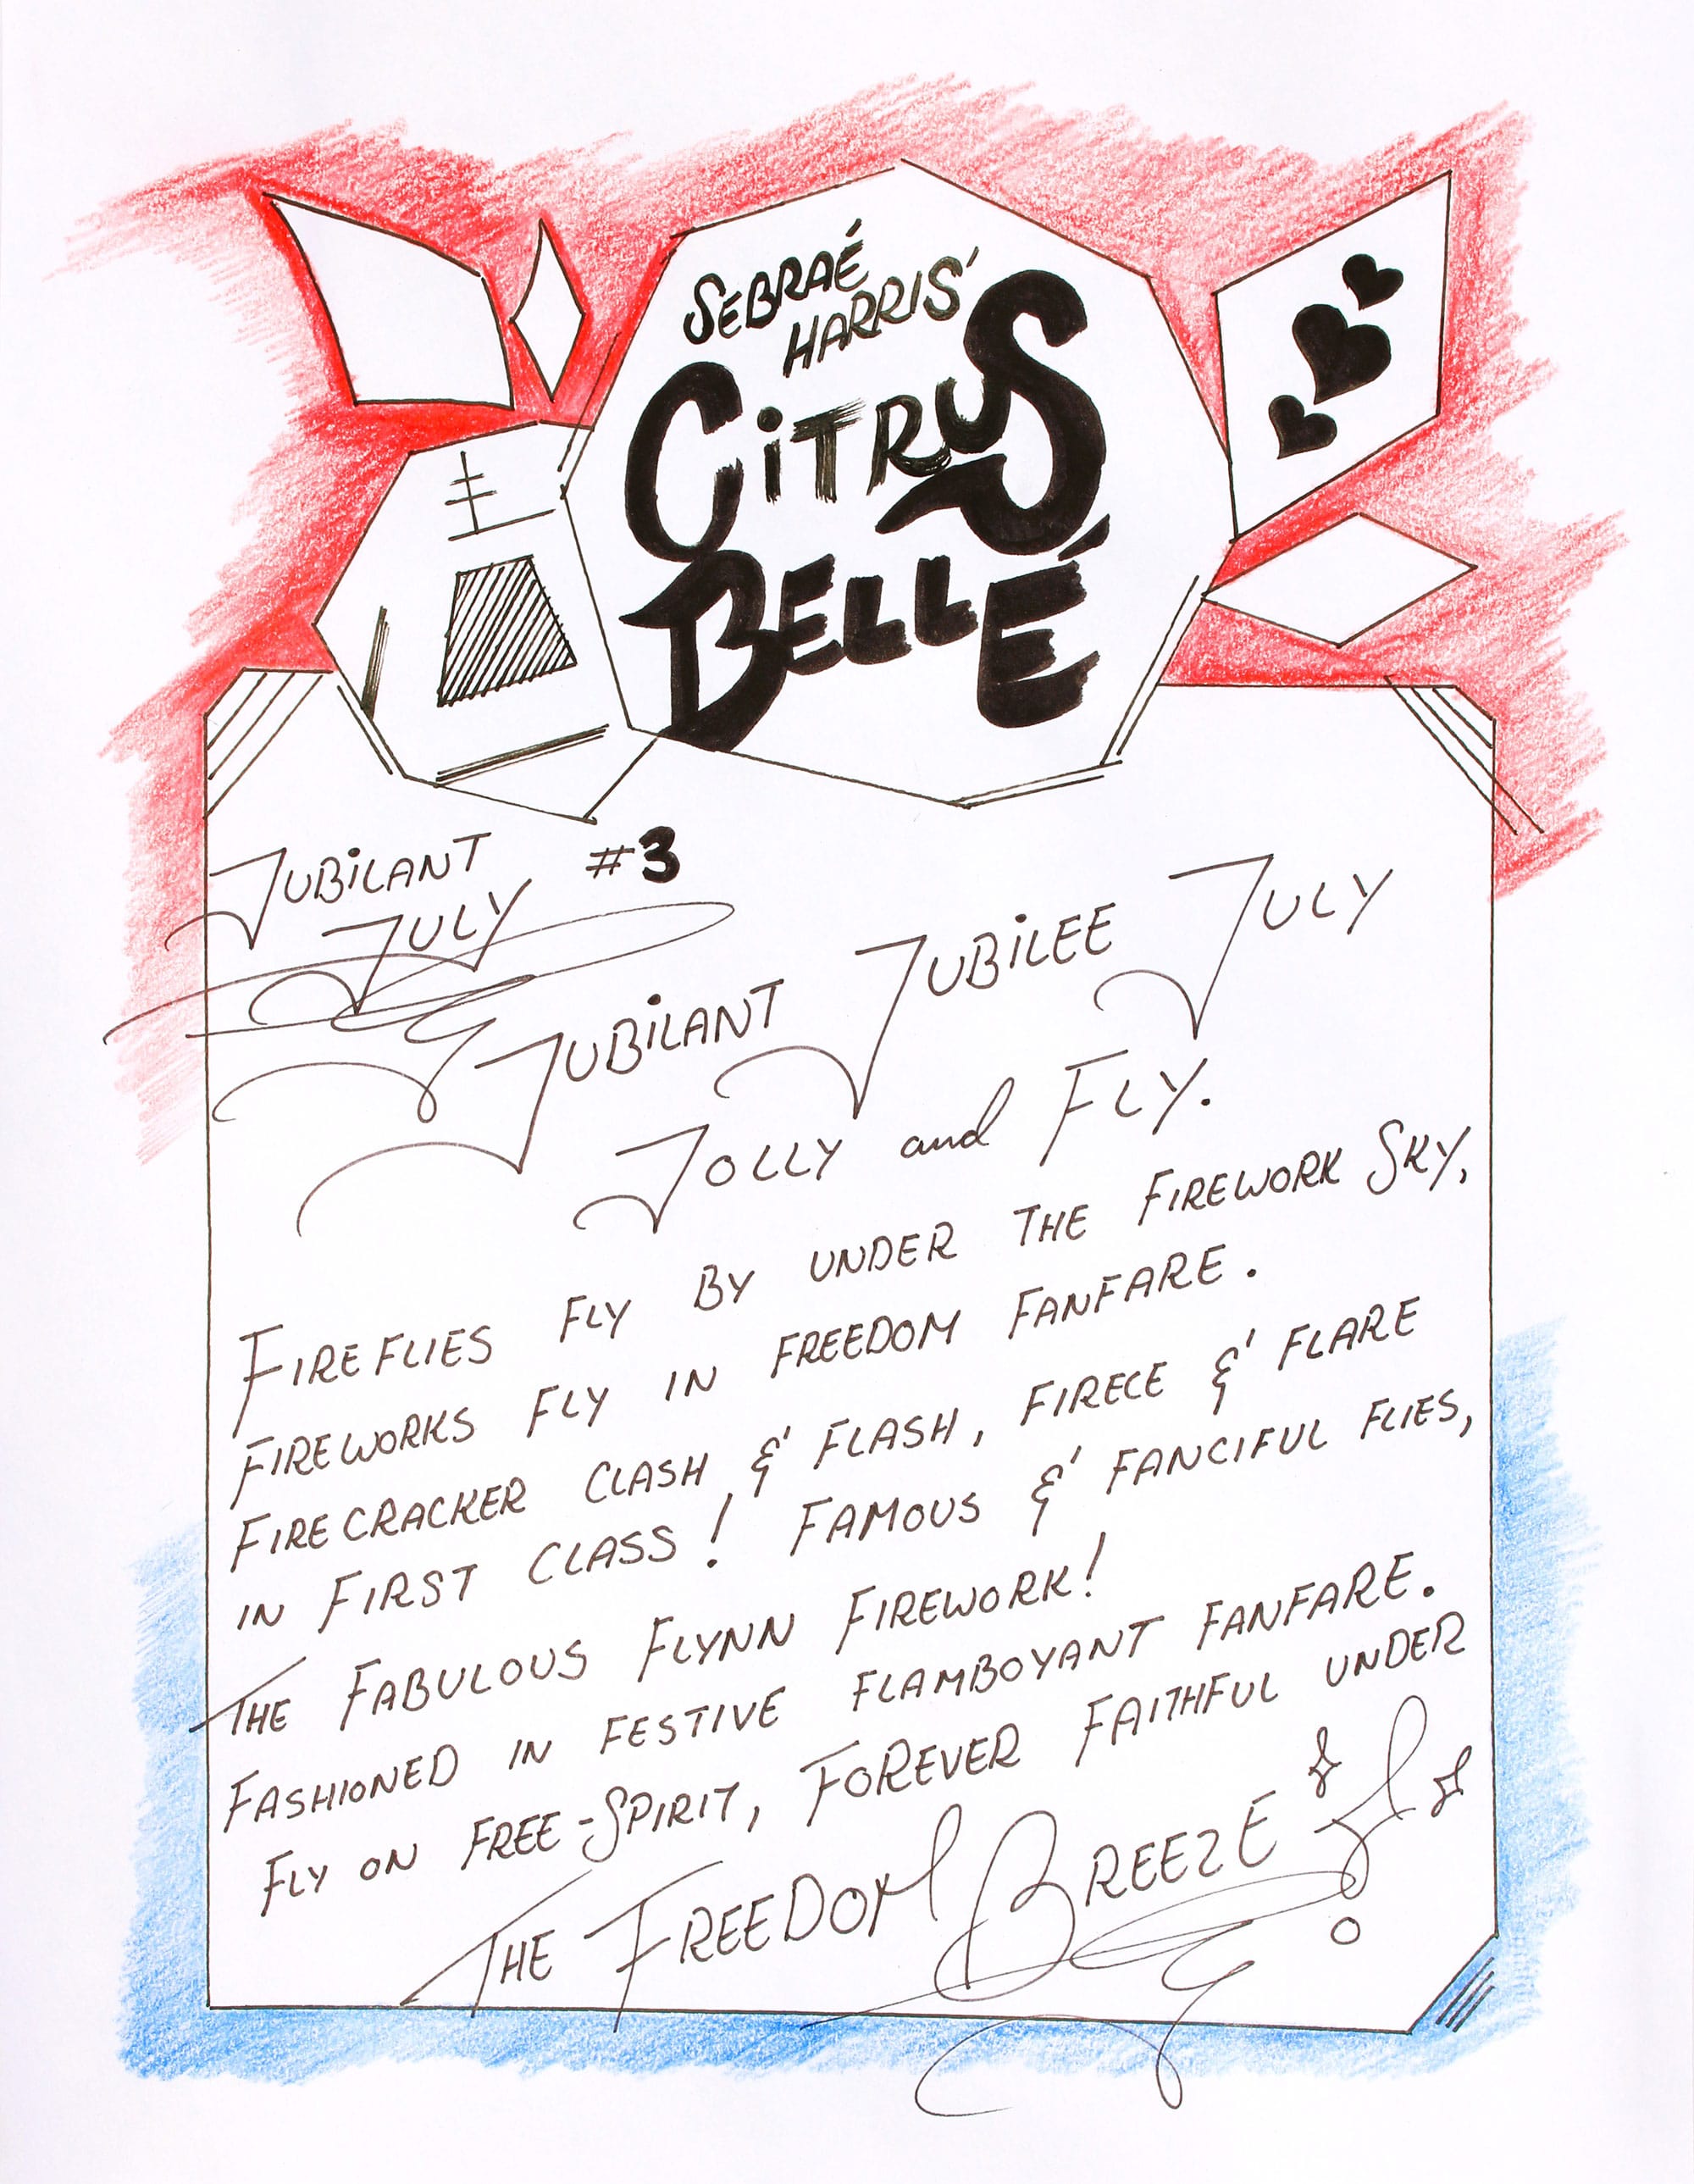 SEBRAÉ
HARRIS'
CiTRUS
BELLÉ
JUBiLANT #3
JULY
JUBiLANT JUBiLEE JULY
JOLLY and FLY.
FIREFLIES FLY BY UNDER THE FIREWORK SKY,
FIREWORKS FLY IN FREEDOM FANFARE.
FIRECRACKER CLASH & FLASH, FIRECE & FLARE
IN FIRST CLASS! FAMOUS & FANCIFUL FLIES,
THE FABULOUS FLYNN FIREWORK!
FASHIONED IN FESTIVE FLAMBOYANT FANFARE.
FLY ON FREE-SPIRIT, FOREVER FAITHFUL UNDER
THE FREEDOM BREEZE